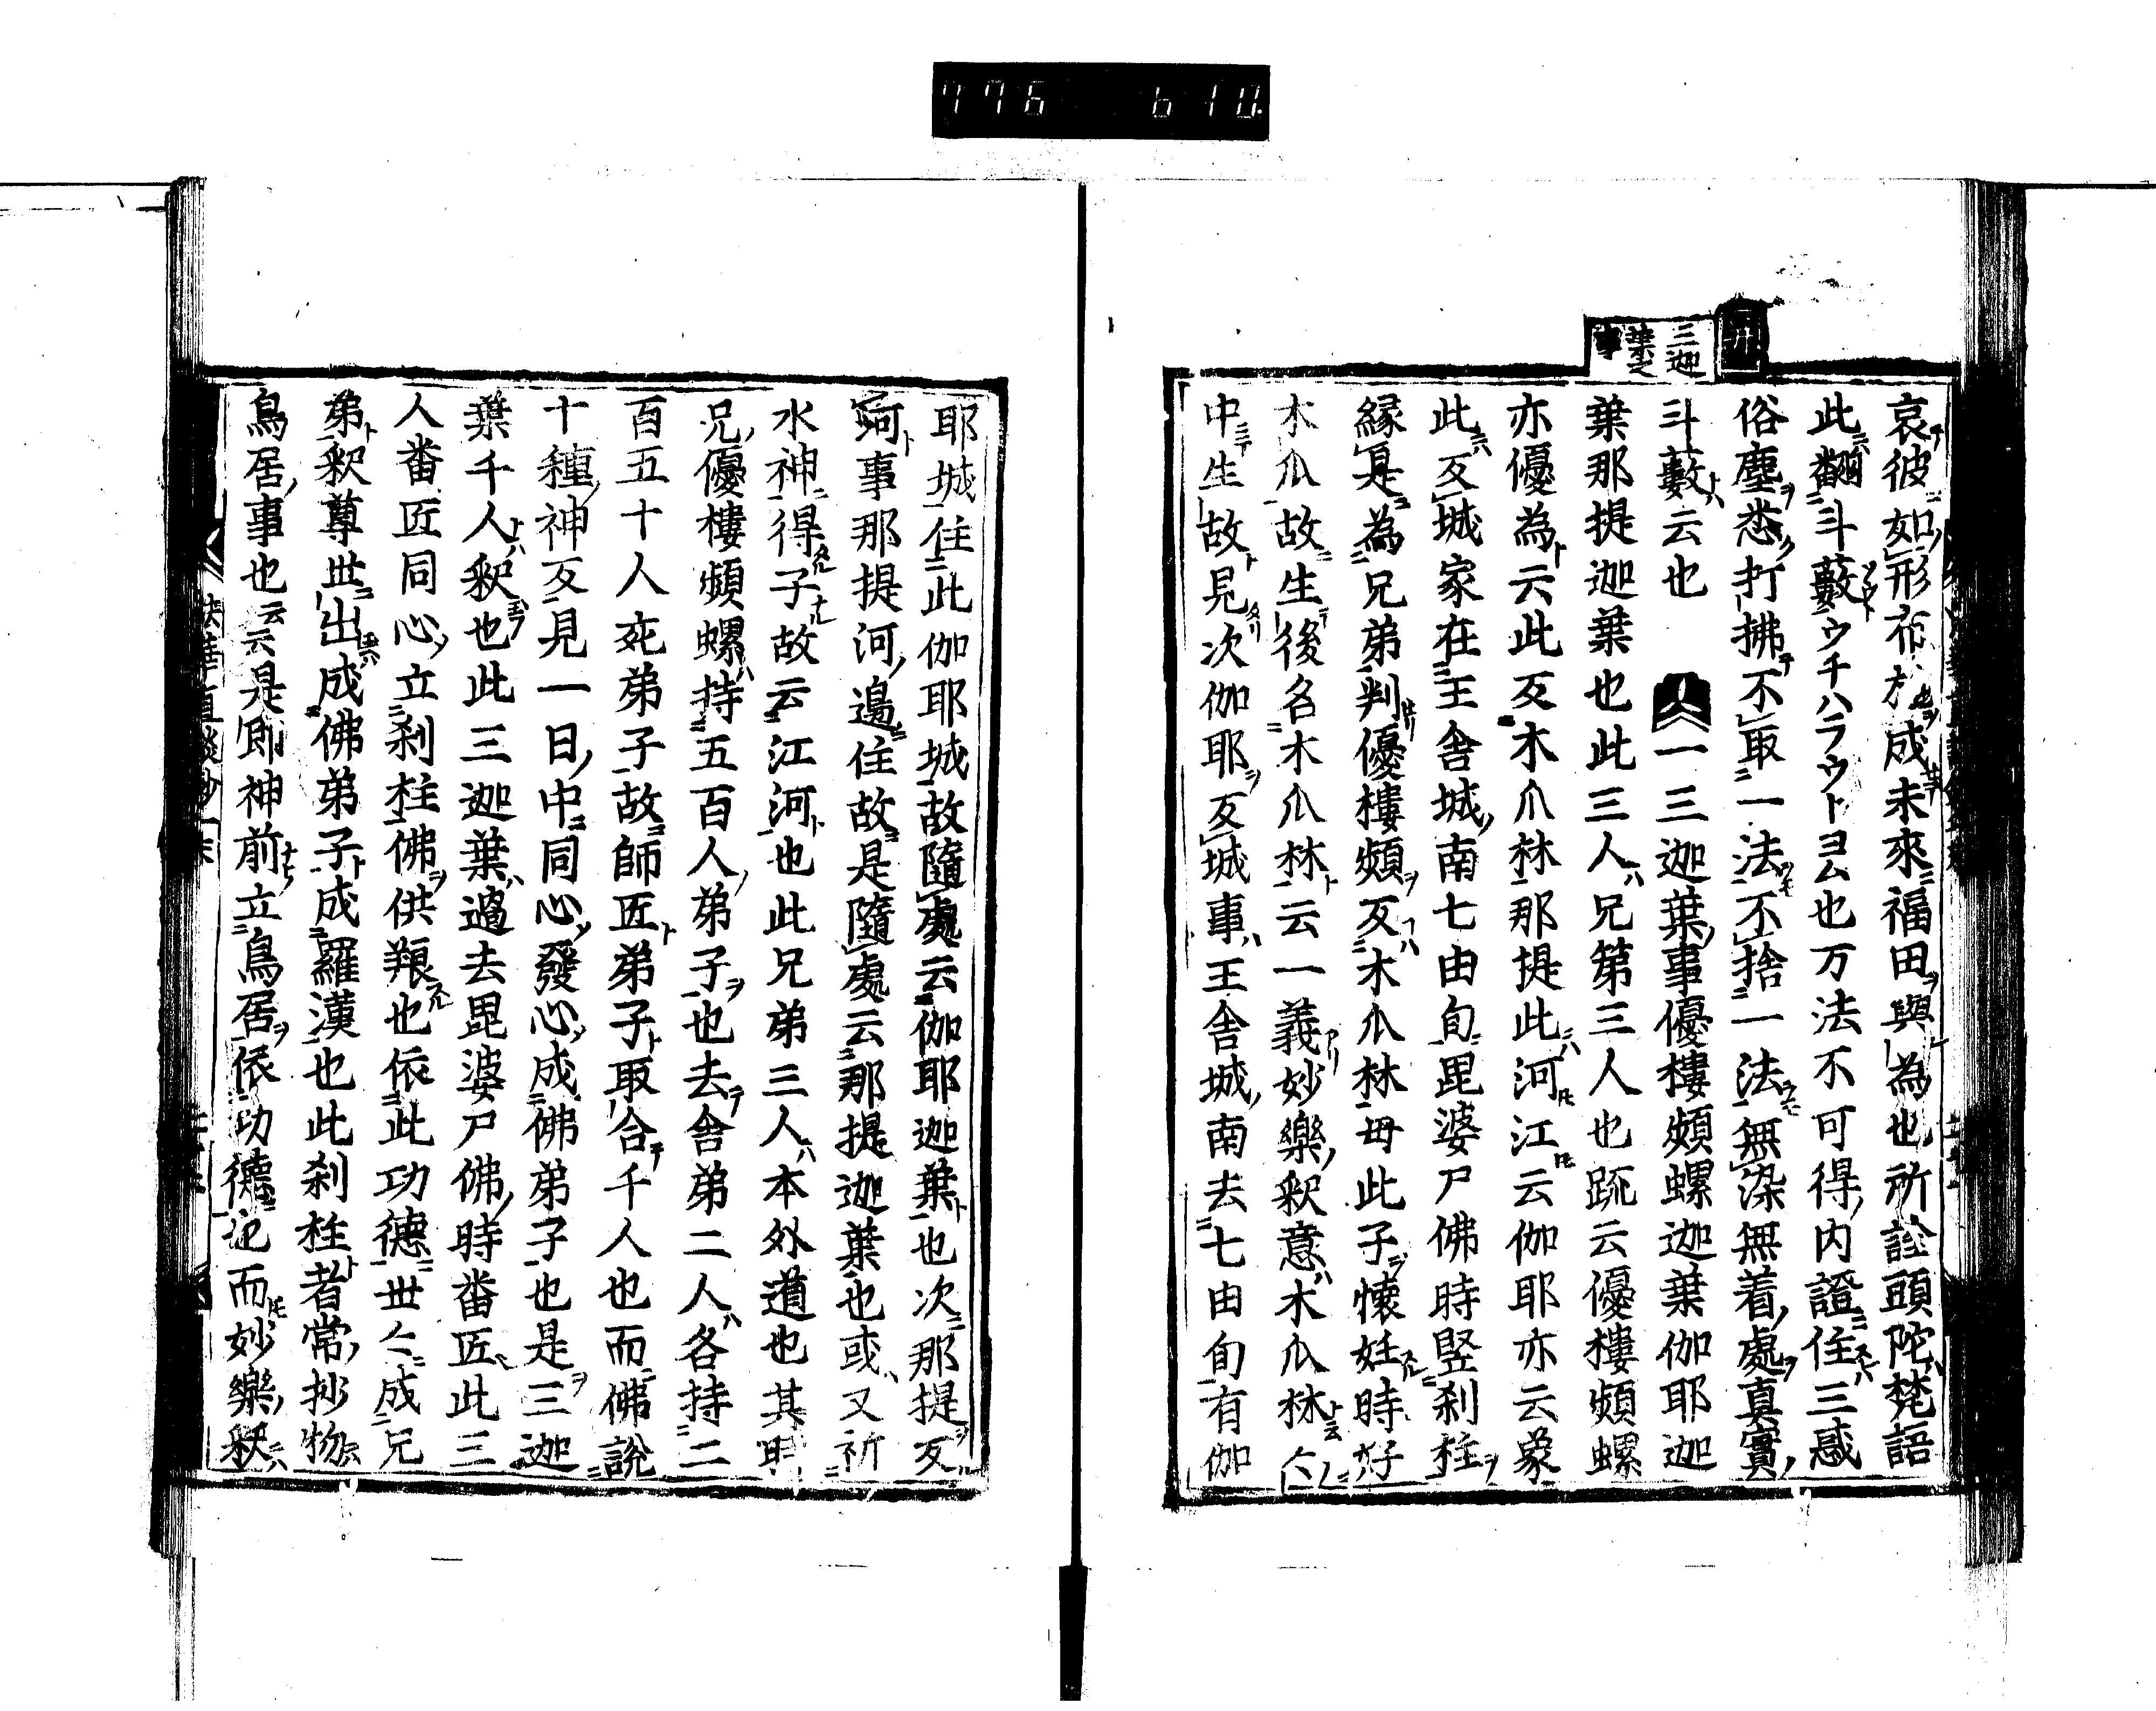 776 610
三迦
葉之
事
哀彼如形布施成未來福田與為也所詮頭陀梵語
此翻斗藪ウチハラウトヨム也万法不可得内證住三惑
俗塵悉打拂不取一法不捨一法無染無着處真實
斗藪云也 一三迦葉事優樓頻螺迦葉伽耶迦
葉那提迦葉也此三人兄第三人也疏云優樓頻螺
亦優為云此反木爪林那提此河江云伽耶亦云象
此反城家在王舎城南七由旬毘婆尸佛時竪刹柱
縁是為兄弟判優樓頻反木爪林母此子懷妊時好
木爪故生後名木爪林云一義妙樂釈意木爪林
中生故見次伽耶反城事王舎城南去七由旬有伽
耶城住此伽耶城故隨處云伽耶迦葉也次那提反
河事那提河邊住故是隨處云那提迦葉也或又祈
水神得子故云江河也此兄弟三人本外道也其時
兄優樓頻螺持五百人弟子也去舎弟二人各持二
百五十人宛弟子故師匠弟子取合千人也而佛說
十種神反見一日中同心發心成佛弟子也是三迦
葉千人釈也此三迦葉過去毘婆尸佛時番匠此三
人番匠同心立刹柱佛供粮也依此功德世々成兄
弟釈尊世出成佛弟子成羅漢也此刹柱者常抄物
鳥居事也云云是即神前立鳥居依功德也而妙樂釈